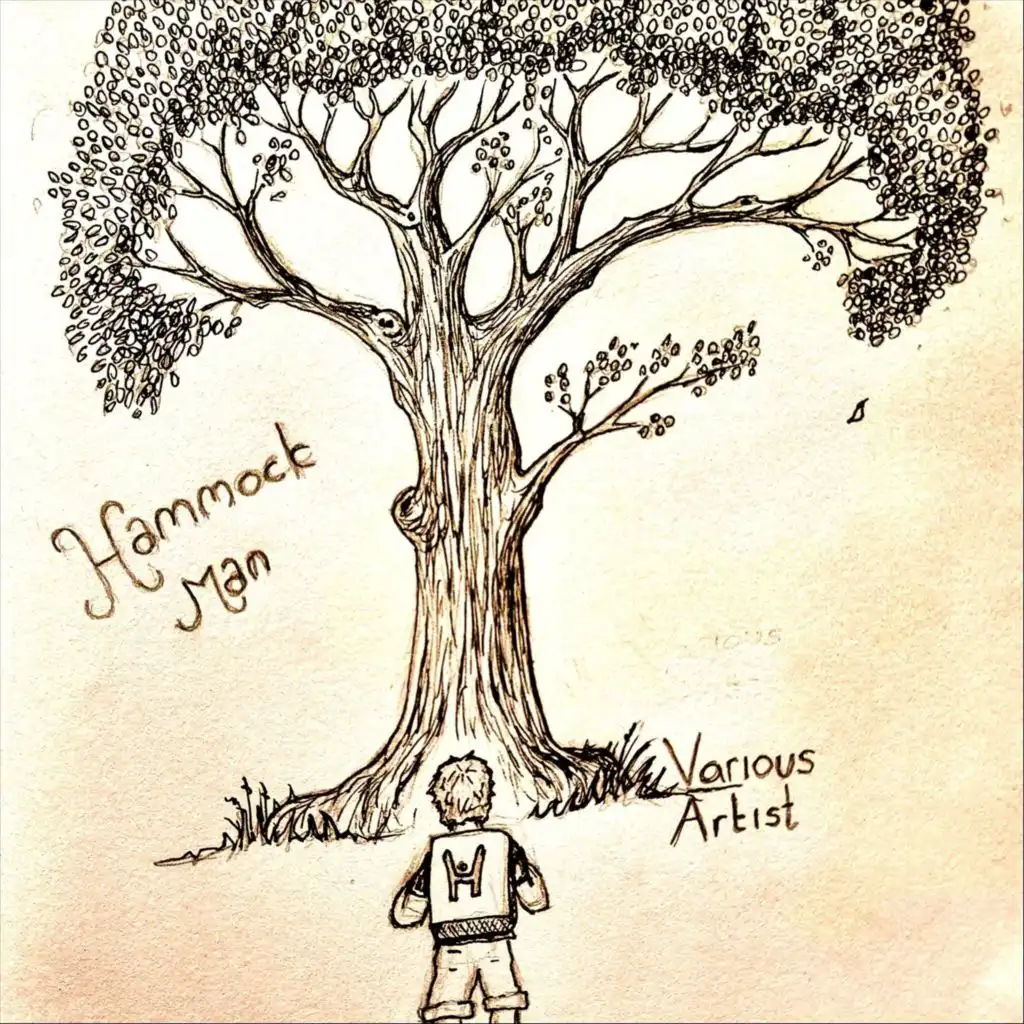 Hammock
Man
Various
Artist
H